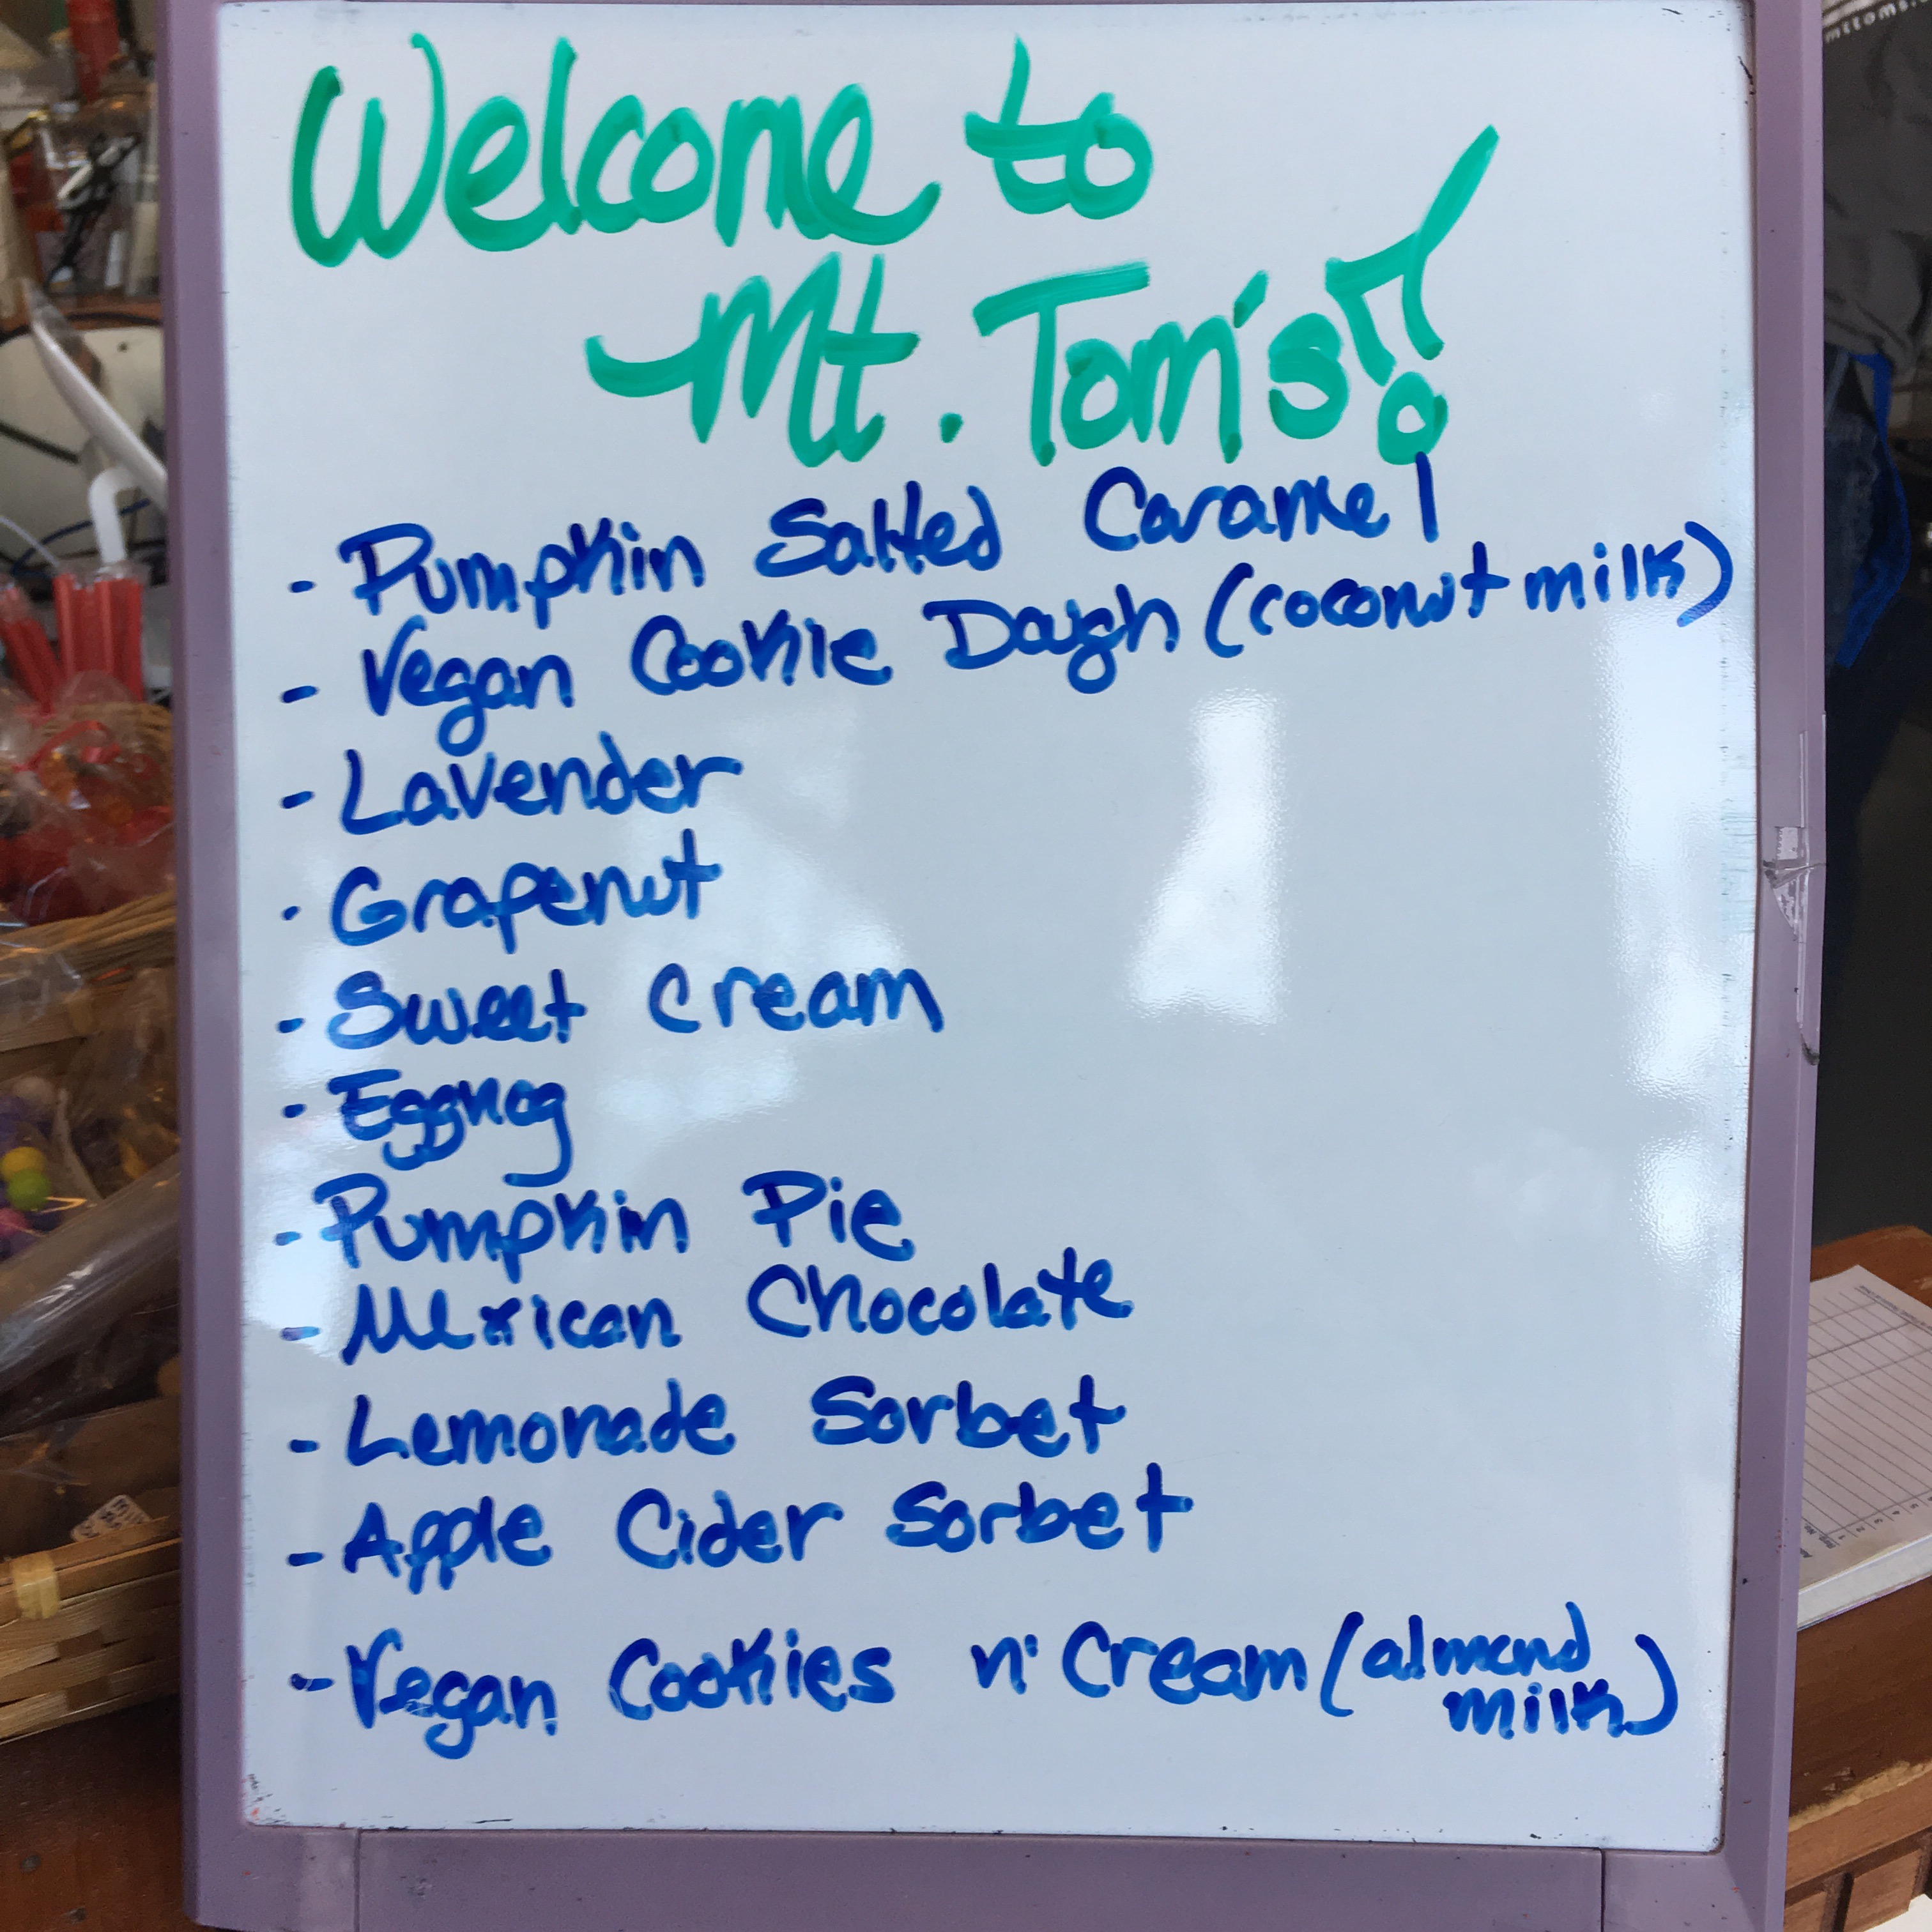 Welcome to
Mt. Tom's!
- Pumpkin Salted Caramel
- Vegan Cookie Dough (coconut milk)
- Lavender
- Grapenut
- Sweet Cream
- Eggnog
- Pumpkin Pie
- Mexican Chocolate
- Lemonade Sorbet
- Apple Cider Sorbet
- Vegan Cookies n' Cream (almond
milk)